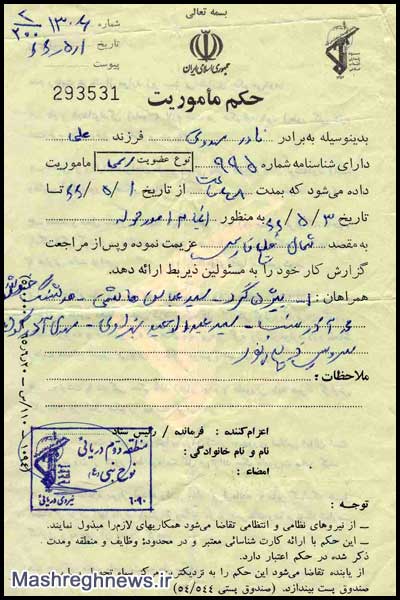 بسمه تعالی
شماره ۱۳۰۶ / ۲ / ۲۰۰
تاریخ ۶۶/۵/۱
پیوست
جمهوری اسلامی ایران
293531
حکم مأموریت
بدینوسیله به برادر نادر مهدوی فرزند علی
دارای شناسنامه شماره ۹۹۵ نوع عضویت رسمی مأموریت
داده می‌شود که بمدت از تاریخ ۶۶/۵/۱ تا
تاریخ ۶۶/۵/۳ به منظور انجام امور محوله
به مقصد شمال خلیج فارس عزیمت نموده و پس از مراجعت
گزارش کار خود را به مسئولین ذیربط ارائه دهد.
همراهان : ۱- بیژن گرد - سید عباس هاشمی -
محمدی -
ملاحظات :
اعزام‌کننده : فرمانده / رئیس ستاد
نام و نام خانوادگی :
امضاء :
منطقه دوم دریائی
نوح نبی (ع)
نیروی دریائی
۶۰۹۰
توجه :
ـ از نیروهای نظامی و انتظامی تقاضا می‌شود همکاریهای لازم را مبذول نمایند.
ـ این حکم با ارائه کارت شناسائی معتبر و در محدوده: وظایف و منطقه ومدت
ذکر شده در حکم اعتبار دارد.
ـ از یابنده تقاضا می‌شود این حکم را به نزدیکترین مرکز سپاه تحویل و یا به
صندوق پست بیندازد. (صندوق پستی ۵۴/۵۴۴)
Mashreghnews.ir